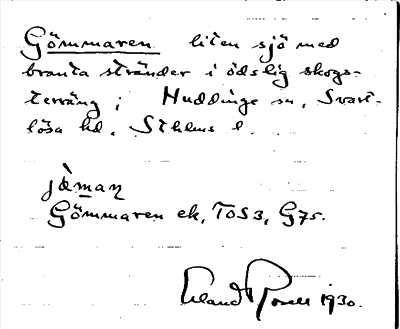 Gömmaren liten sjö med
branta stränder i ödslig skogs-
terräng; Huddinge sn, Svart-
lösa hd. Sthlms l.
jö̀man
Gömmaren ek, TOS3, G75.
Erland Rosell 1930.